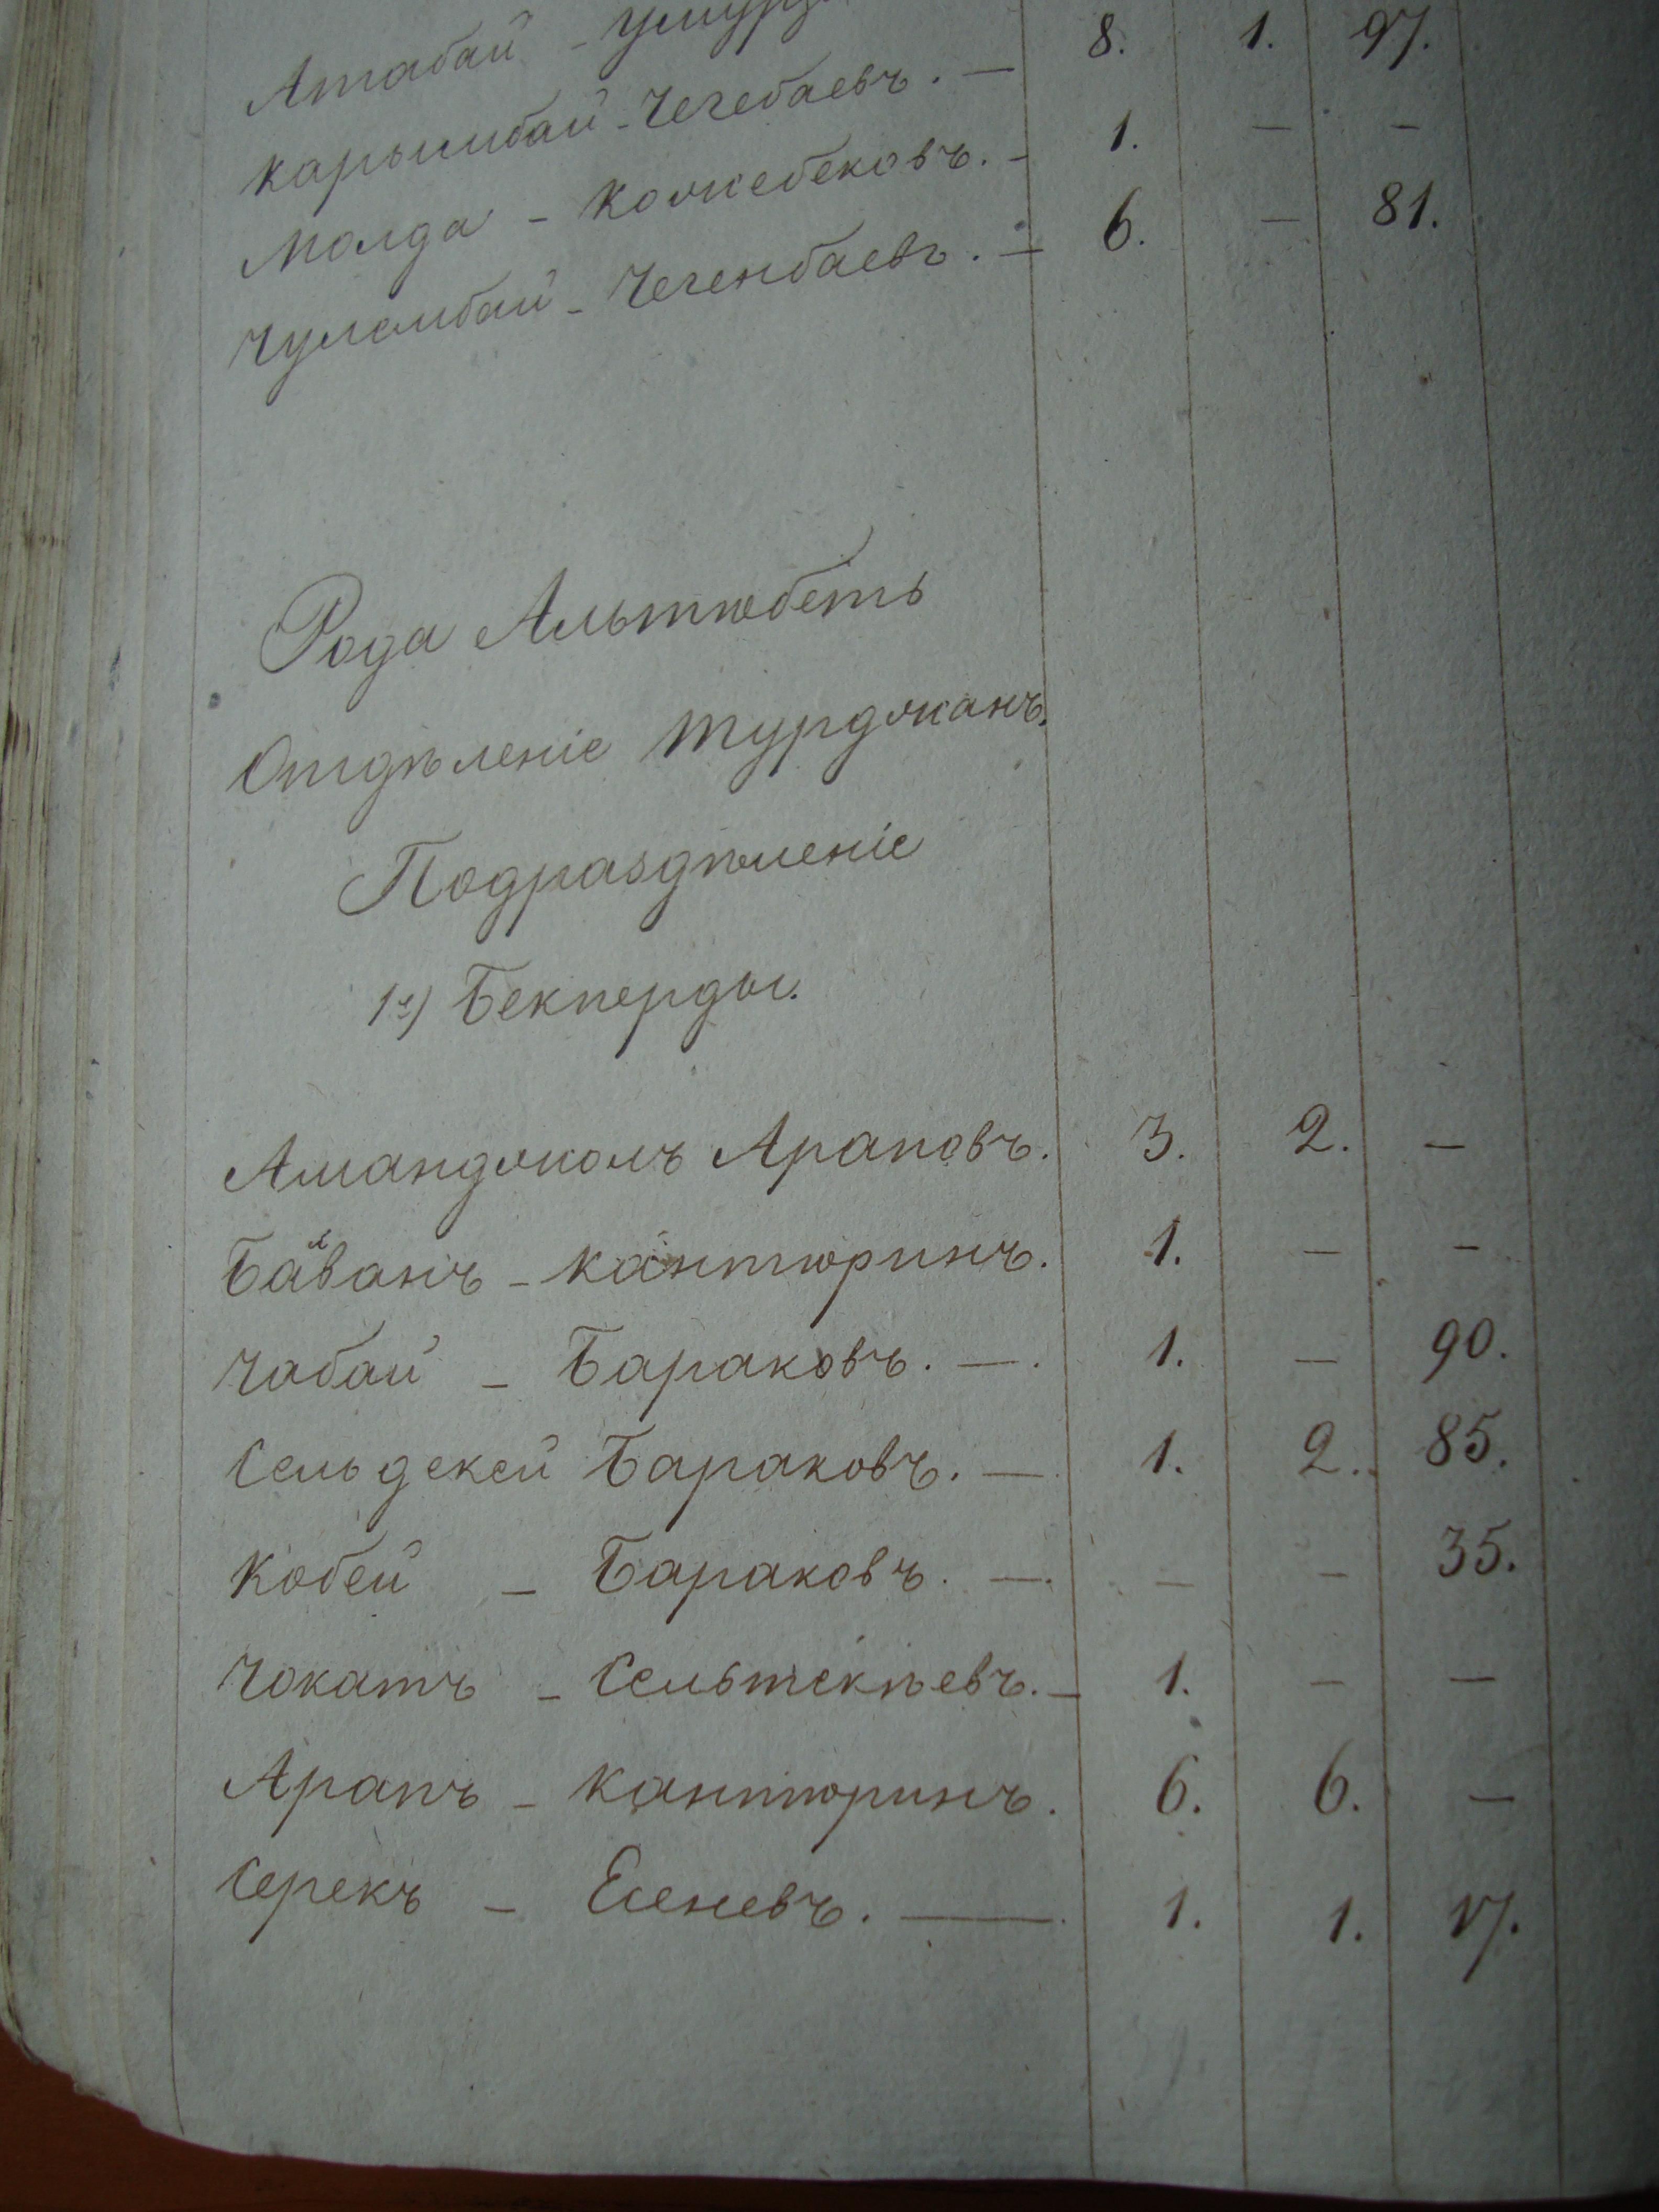 Атабай -
Карымбай - Чегебаевъ. — 8. 1. 97.
Молда - Кожебековъ. - 1. — —
Чуламбай - Чегенбаевъ. — 6. — 81.
Рода Альтюбетъ
Отдѣленіе Турджанъ.
Подраздѣленіе
1е) Бекперды.
Аманджолъ Араповъ. 3. 2. —
- Кантюринъ. 1. — —
Чабай - Бараковъ. —. 1. — 90.
Сельдекей Бараковъ. —. 1. 2. 85.
Кобей - Бараковъ. —. — — 35.
Чокатъ - Сельтекѣевъ. - 1. — —
Арапъ - Кантюринъ. 6. 6. —
Серекъ - Есеневъ. —. 1. 1. 17.